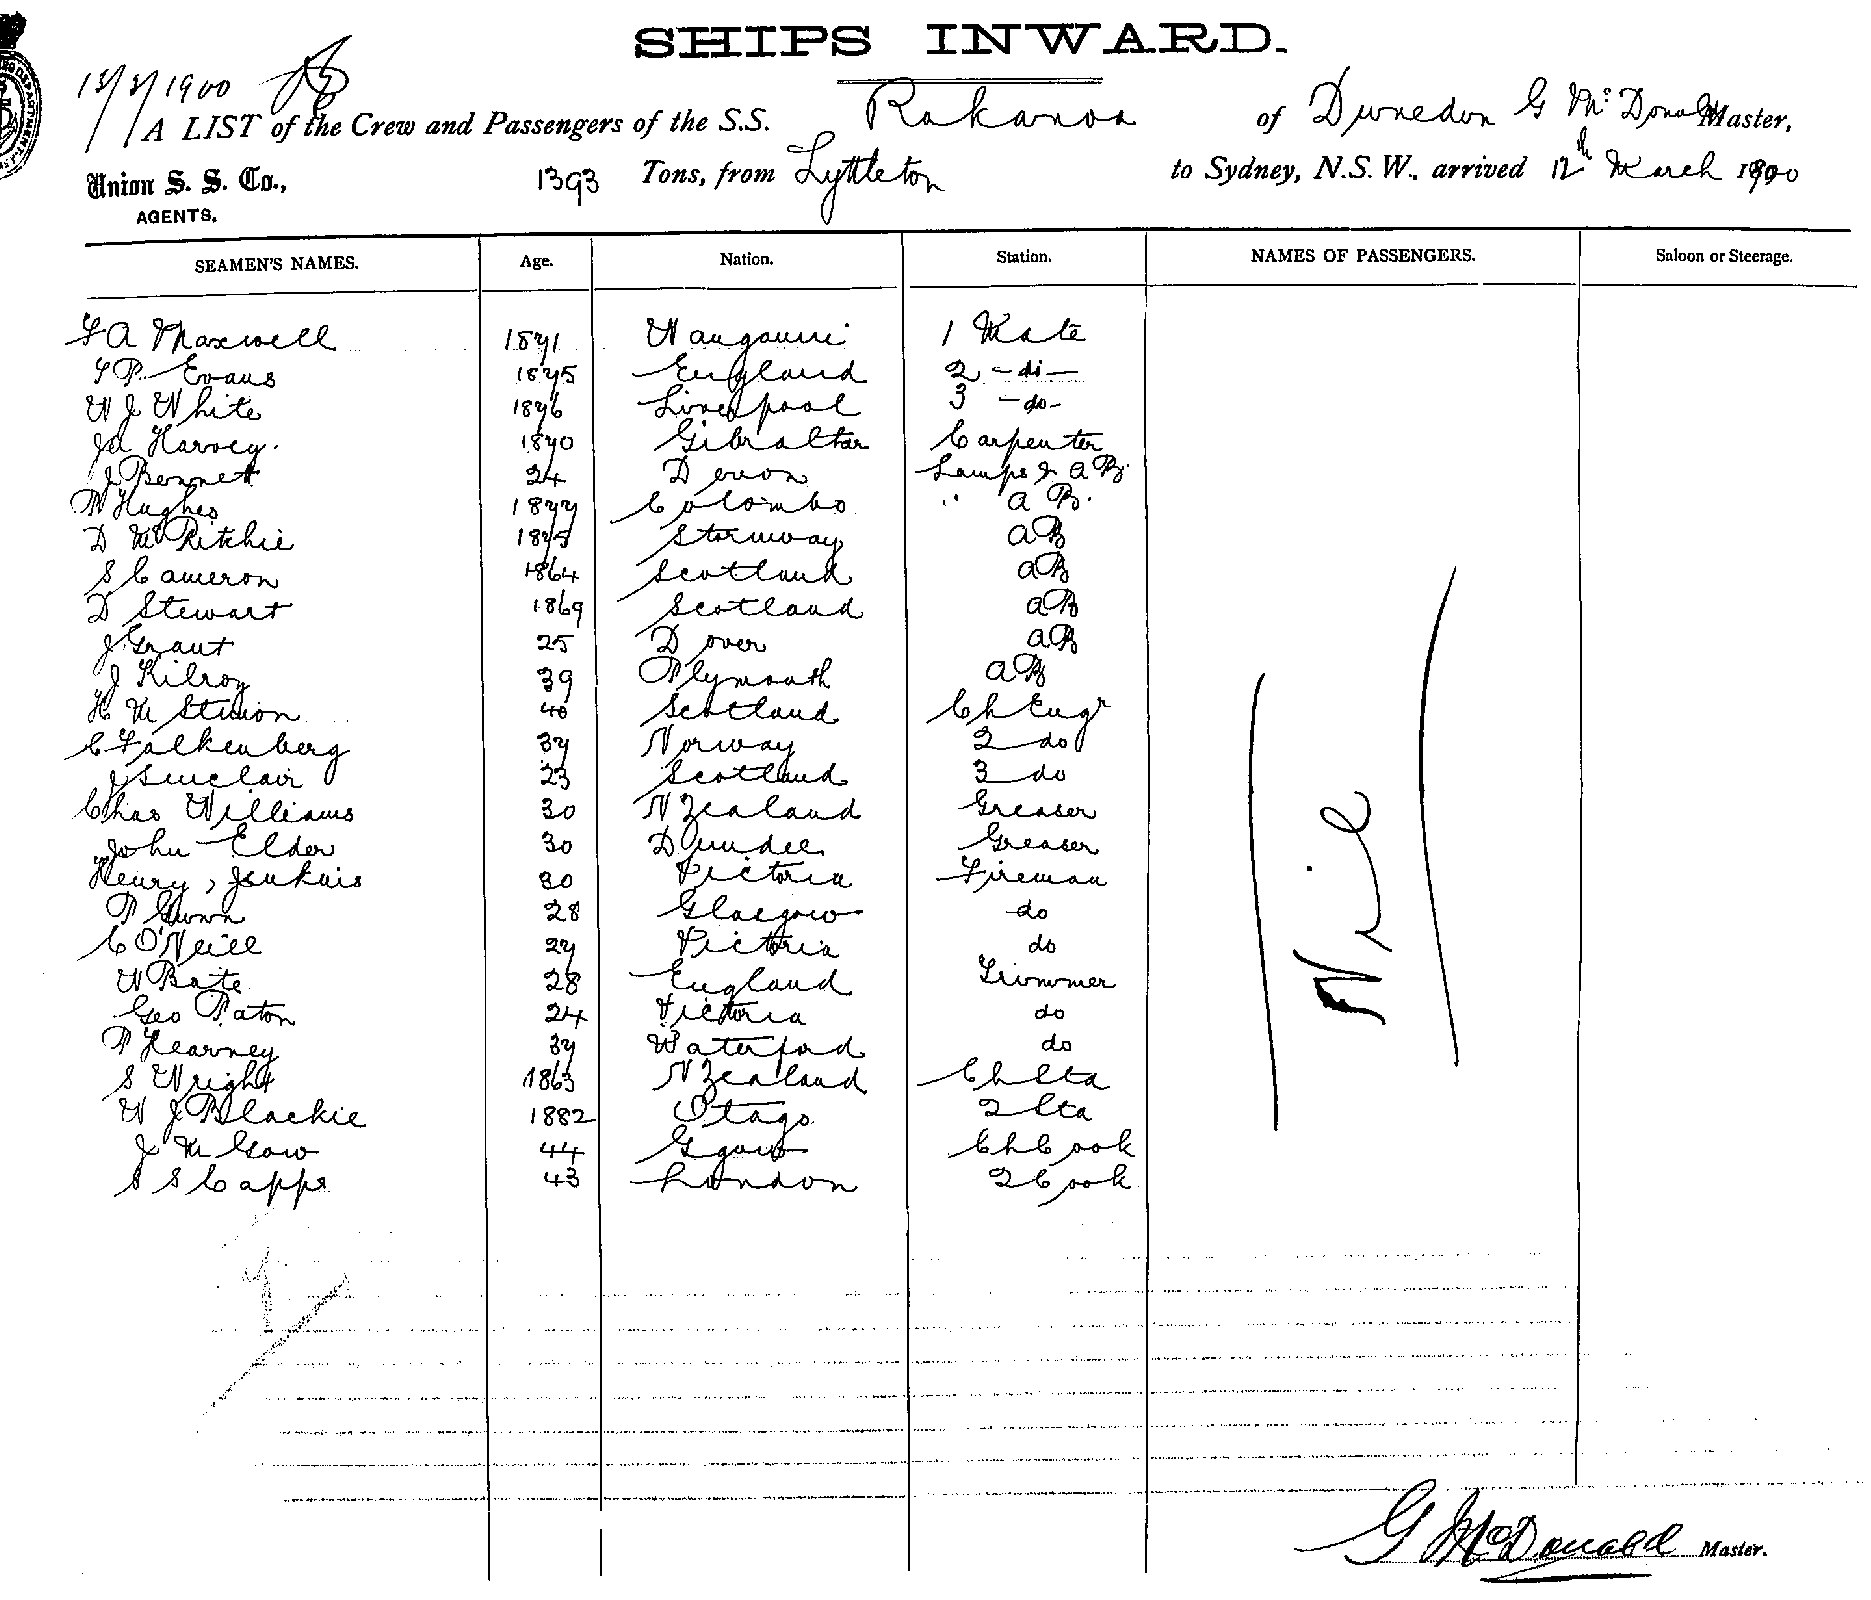 SHIPS INWARD.
13/3/1900
A LIST of the Crew and Passengers of the S.S. Rakanoa of Dunedin G McDonald Master,
Union S. S. Co., 1393 Tons, from Lyttleton to Sydney, N.S.W., arrived 12th March 1900
AGENTS.
SEAMEN'S NAMES. Age. Nation. Station. NAMES OF PASSENGERS. Saloon or Steerage.
A Maxwell 1871 Wanganui 1 Mate
P Evans 1875 England 2 -do-
W J White 1876 Liverpool 3 -do-
Harvey. 1870 Gibraltar Carpenter
J Bennett 24 Devon Lamps & AB
Hughes 1877 Colombo " AB.
D McRitchie 1875 Stornway AB
S Cameron 1864 Scotland AB
D Stewart 1869 Scotland AB
J Grant 25 Dover AB
J Kilroy 39 Plymouth AB
H 40 Scotland Ch Engr
C Falkenberg 37 Norway 2 do
J Sinclair 23 Scotland 3 do
Chas Williams 30 N Zealand Greaser
John Elder 30 Dundee Greaser
Henry Jenkins 30 Victoria Fireman
P Gunn 28 Glasgow do
C O'Neill 27 Victoria do
W Bate 28 England Trimmer
Geo Paton 24 Victoria do
P Kearney 37 Waterford do
S Wright 1863 N Zealand Ch Sta
W J Blackie 1882 Otago 2 Sta
J McGaw 44 Ggow Ch Cook
S S Capps 43 London 2 Cook
Nil
G McDonald Master.